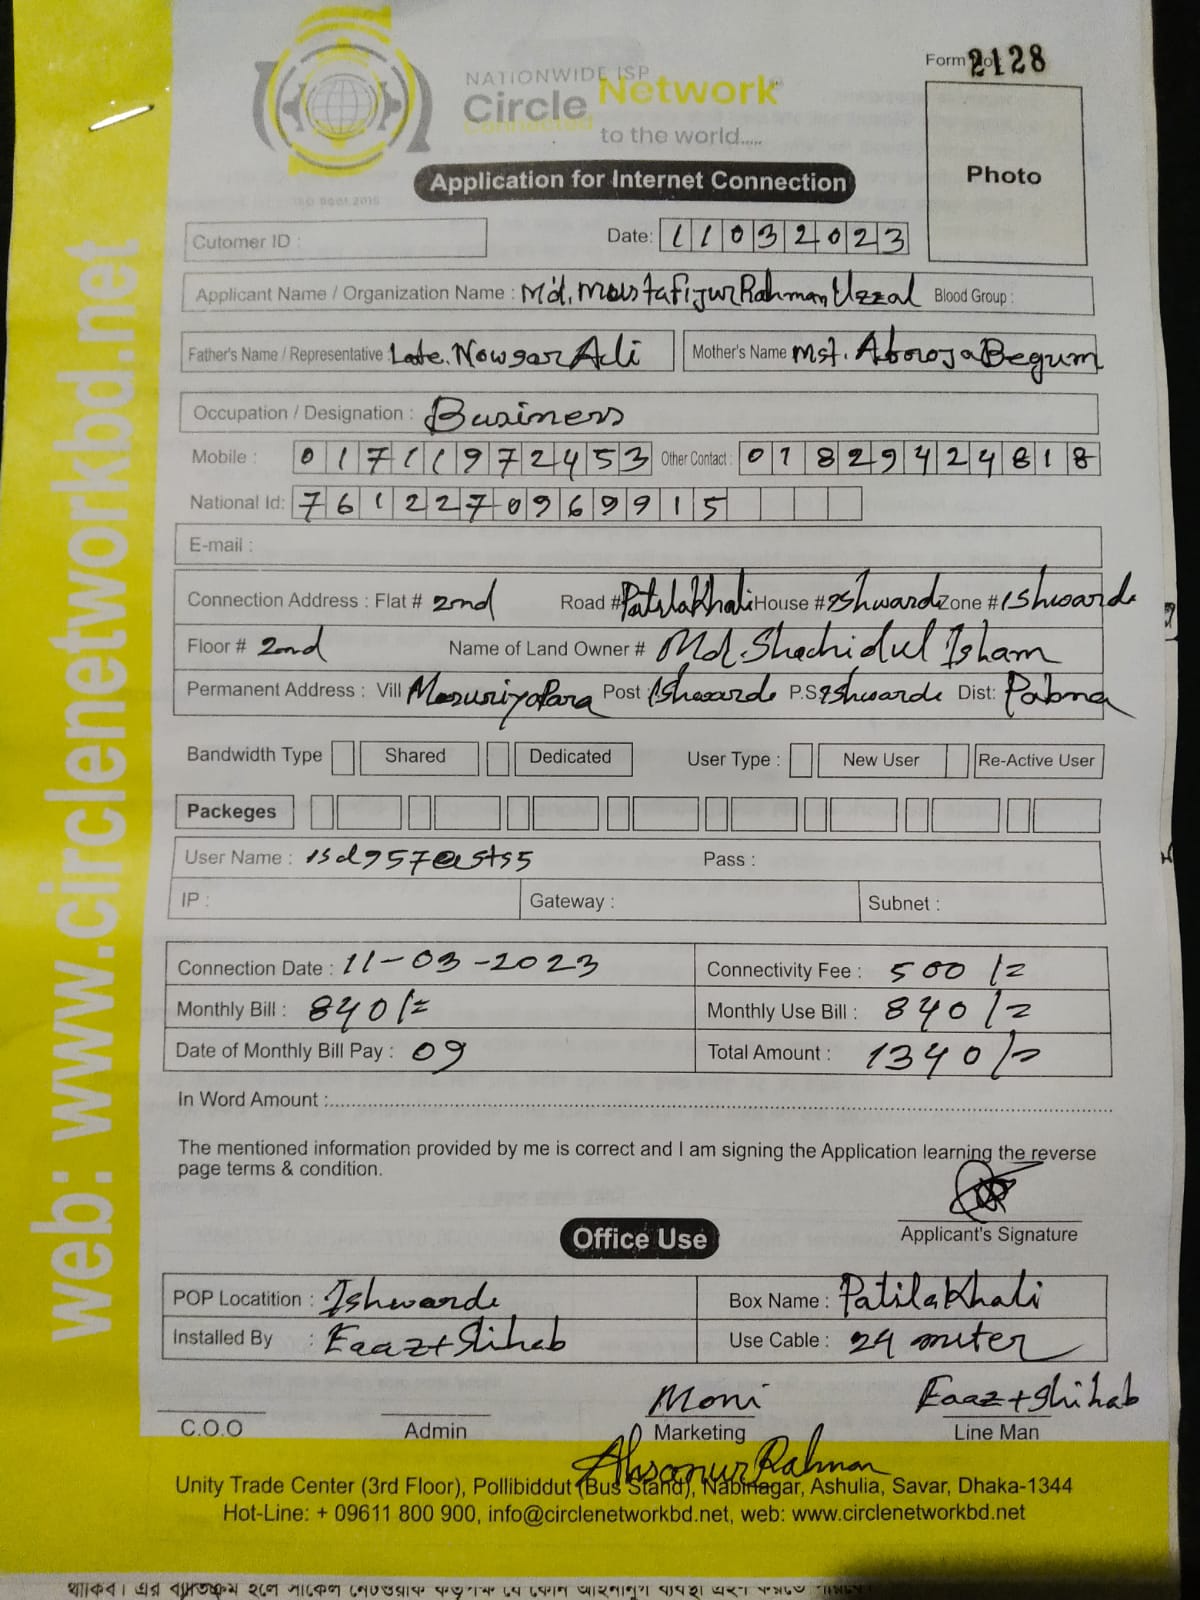 Form No 2128
NATIONWIDE ISP
Circle Network
Connected
to the world.....
Photo
Application for Internet Connection
ISO 9001:2015
Cutomer ID :
Date: 11032023
Applicant Name / Organization Name : Md. Mustafijur Rahman Uzzal Blood Group :
Father's Name / Representative : Late. Nowsar Ali Mother's Name Mst. Aboroja Begum
Occupation / Designation : Business
Mobile : 01711972453 Other Contact : 01829424818
National Id: 7612270969915
E-mail :
Connection Address : Flat # 2nd Road # PatilaKhali House # Ishwardi Zone # Ishwardi
Floor # 2nd Name of Land Owner # Md. Shachidul Isham
Permanent Address : Vill MosuriyaPara Post Ishwardi P.S Ishwardi Dist: Pabna
Bandwidth Type Shared Dedicated User Type : New User Re-Active User
Packeges
User Name : isd957@sts5 Pass :
IP : Gateway : Subnet :
Connection Date : 11-03-2023 Connectivity Fee : 500/=
Monthly Bill : 840/= Monthly Use Bill : 840/=
Date of Monthly Bill Pay : 09 Total Amount : 1340/=
In Word Amount :
The mentioned information provided by me is correct and I am signing the Application learning the reverse
page terms & condition.
Applicant's Signature
Office Use
POP Locatition : Ishwardi Box Name : PatilaKhali
Installed By : Eaaz+Shihab Use Cable : 24 miter
Moni Eaaz+Shihab
C.O.O Admin Marketing Line Man
Ahsanur Rahman
Unity Trade Center (3rd Floor), Pollibiddut (Bus Stand), Nabinagar, Ashulia, Savar, Dhaka-1344
Hot-Line: + 09611 800 900, info@circlenetworkbd.net, web: www.circlenetworkbd.net
web: www.circlenetworkbd.net
থাকিব। এর ব্যতিক্রম হলে সার্কেল নেটওয়ার্ক কর্তৃপক্ষ যে কোন আইনানুগ ব্যবস্থা গ্রহণ করতে পারিবে।